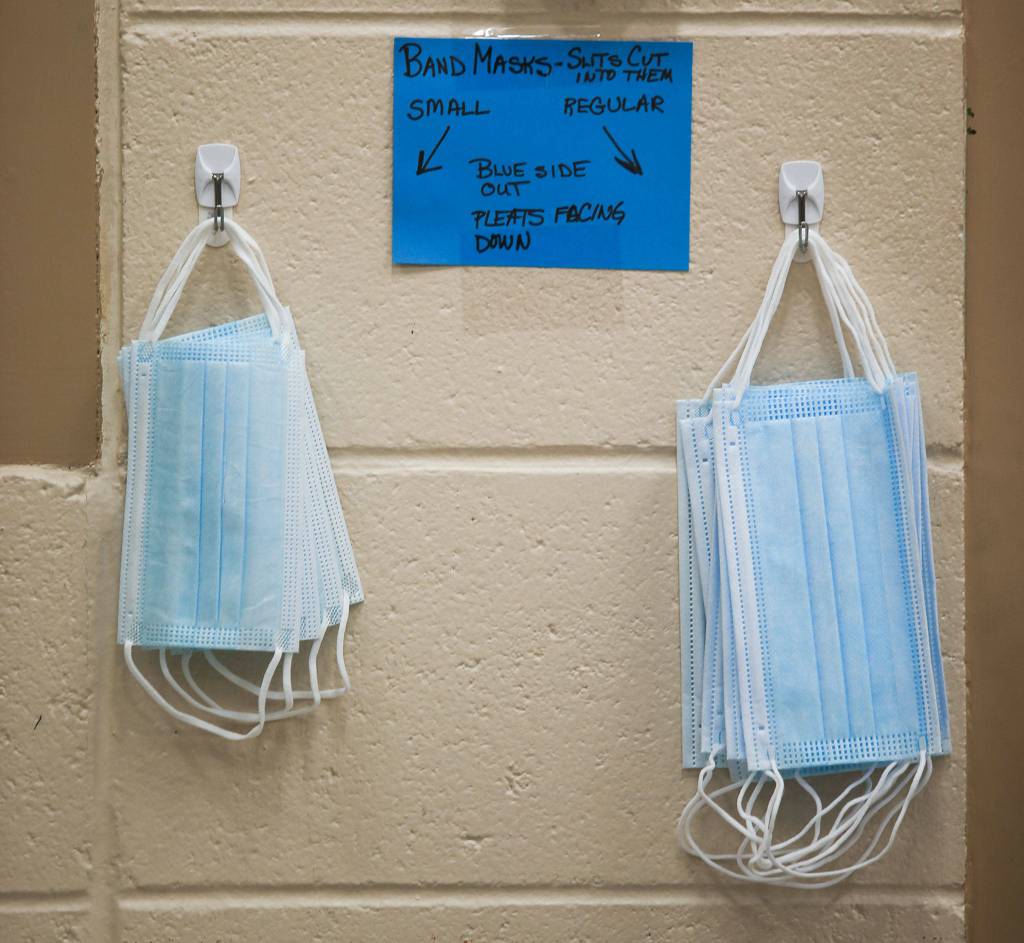 BAND MASKS - SLITS CUT
INTO THEM
SMALL REGULAR
BLUE SIDE
OUT
PLEATS FACING
DOWN